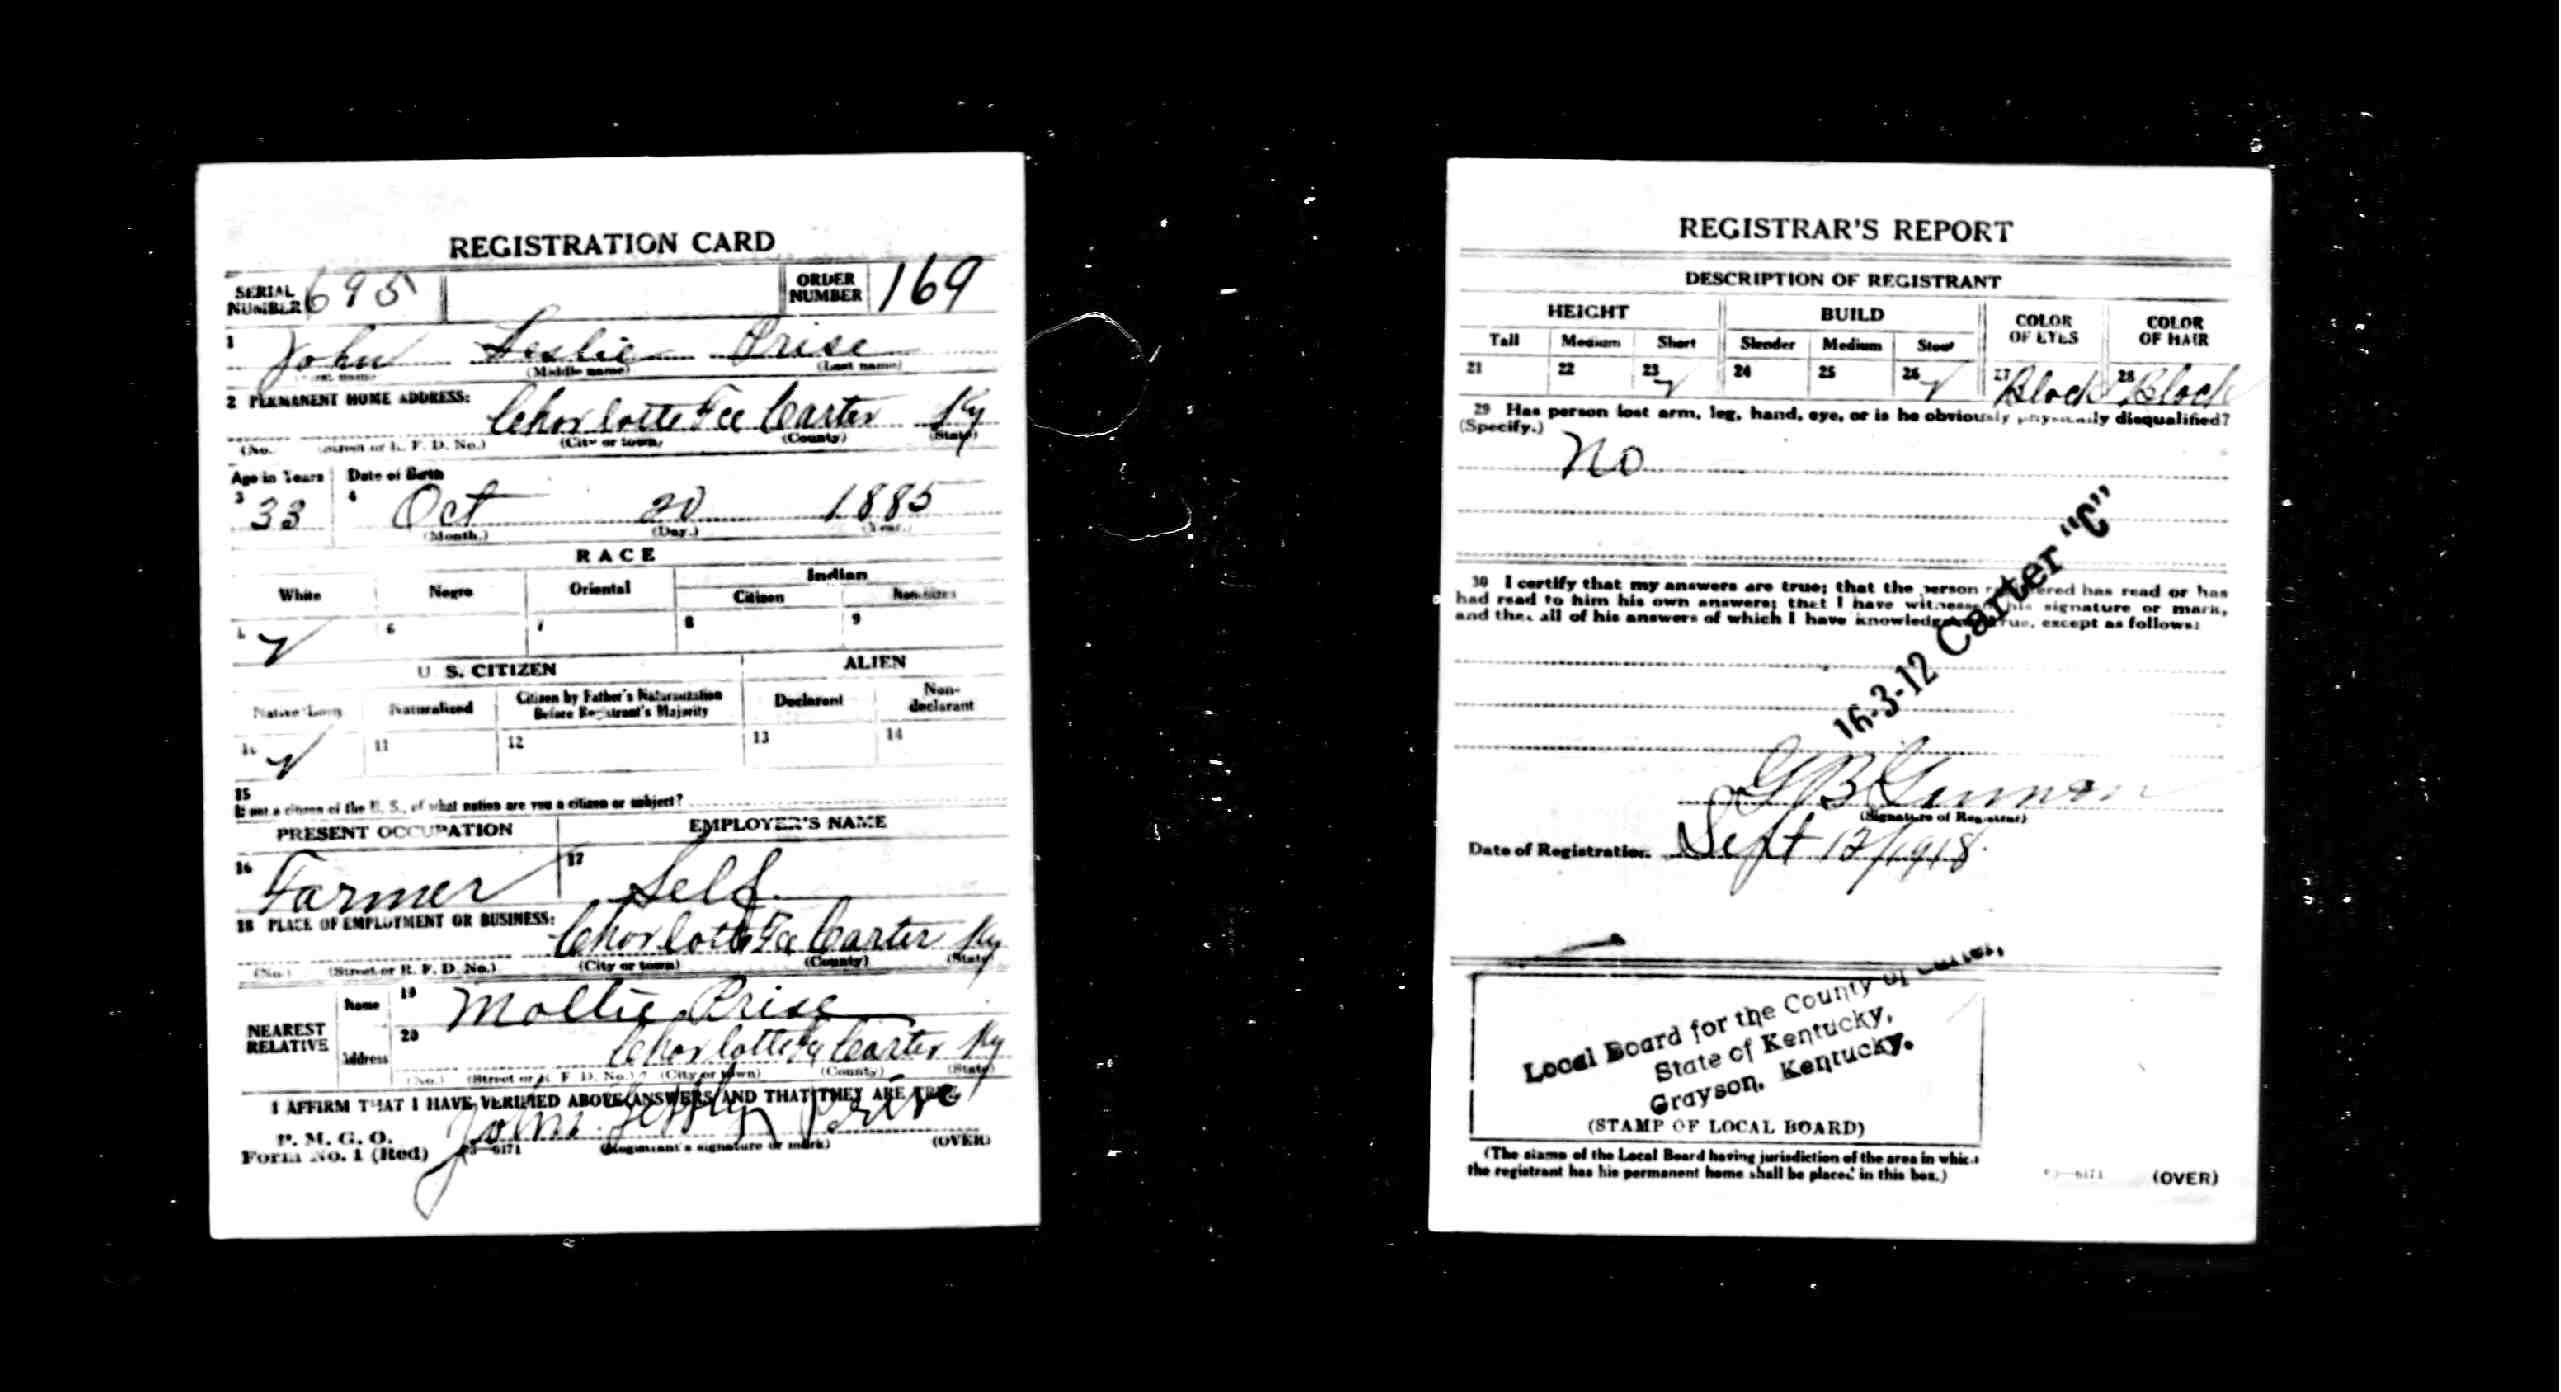 REGISTRATION CARD
SERIAL NUMBER 695 ORDER NUMBER 169
1 John Leslie Prise
(Middle name) (Last name)
2 PERMANENT HOME ADDRESS: Charlotte Fee Carter Ky
(No. (Street or R. F. D. No.) (City or town) (County) (State)
Age in Years Date of Birth
3 33 4 Oct 20 1885
(Month.) (Day.) (Year.)
RACE
White Negro Oriental Indian
Citizen Non-citizen
✓ 6 7 8 9
U. S. CITIZEN ALIEN
Native Born Naturalized Citizen by Father's Naturalization Before Registrant's Majority Declarant Non-declarant
10 ✓ 11 12 13 14
15
If not a citizen of the U. S., of what nation are you a citizen or subject?
PRESENT OCCUPATION EMPLOYER'S NAME
16 Farmer 17 Self
18 PLACE OF EMPLOYMENT OR BUSINESS: Charlotte Fee Carter Ky
(No.) (Street or R. F. D. No.) (City or town) (County) (State)
NEAREST RELATIVE
Name 19 Mollie Prise
Address 20 Charlotte Fee Carter Ky
(No.) (Street or R. F. D. No.) (City or town) (County) (State)
I AFFIRM THAT I HAVE VERIFIED ABOVE ANSWERS AND THAT THEY ARE TRUE
P. M. G. O.
Form No. 1 (Red) 03—6171 John (Registrant's signature or mark) (OVER)
REGISTRAR'S REPORT
DESCRIPTION OF REGISTRANT
HEIGHT BUILD COLOR OF EYES COLOR OF HAIR
Tall Medium Short Slender Medium Stout
21 22 23 ✓ 24 25 26 ✓ 27 Black 28 Black
29 Has person lost arm, leg, hand, eye, or is he obviously physically disqualified?
(Specify.)
No
30 I certify that my answers are true; that the person registered has read or has
had read to him his own answers; that I have witnessed his signature or mark,
and that all of his answers of which I have knowledge are true, except as follows:
16-3-12 Carter "C"
G B
(Signature of Registrar)
Date of Registration Sept 12/1918
Local Board for the County of Carter,
State of Kentucky,
Grayson, Kentucky.
(STAMP OF LOCAL BOARD)
(The stamp of the Local Board having jurisdiction of the area in which
the registrant has his permanent home shall be placed in this box.)
03—6171 (OVER)